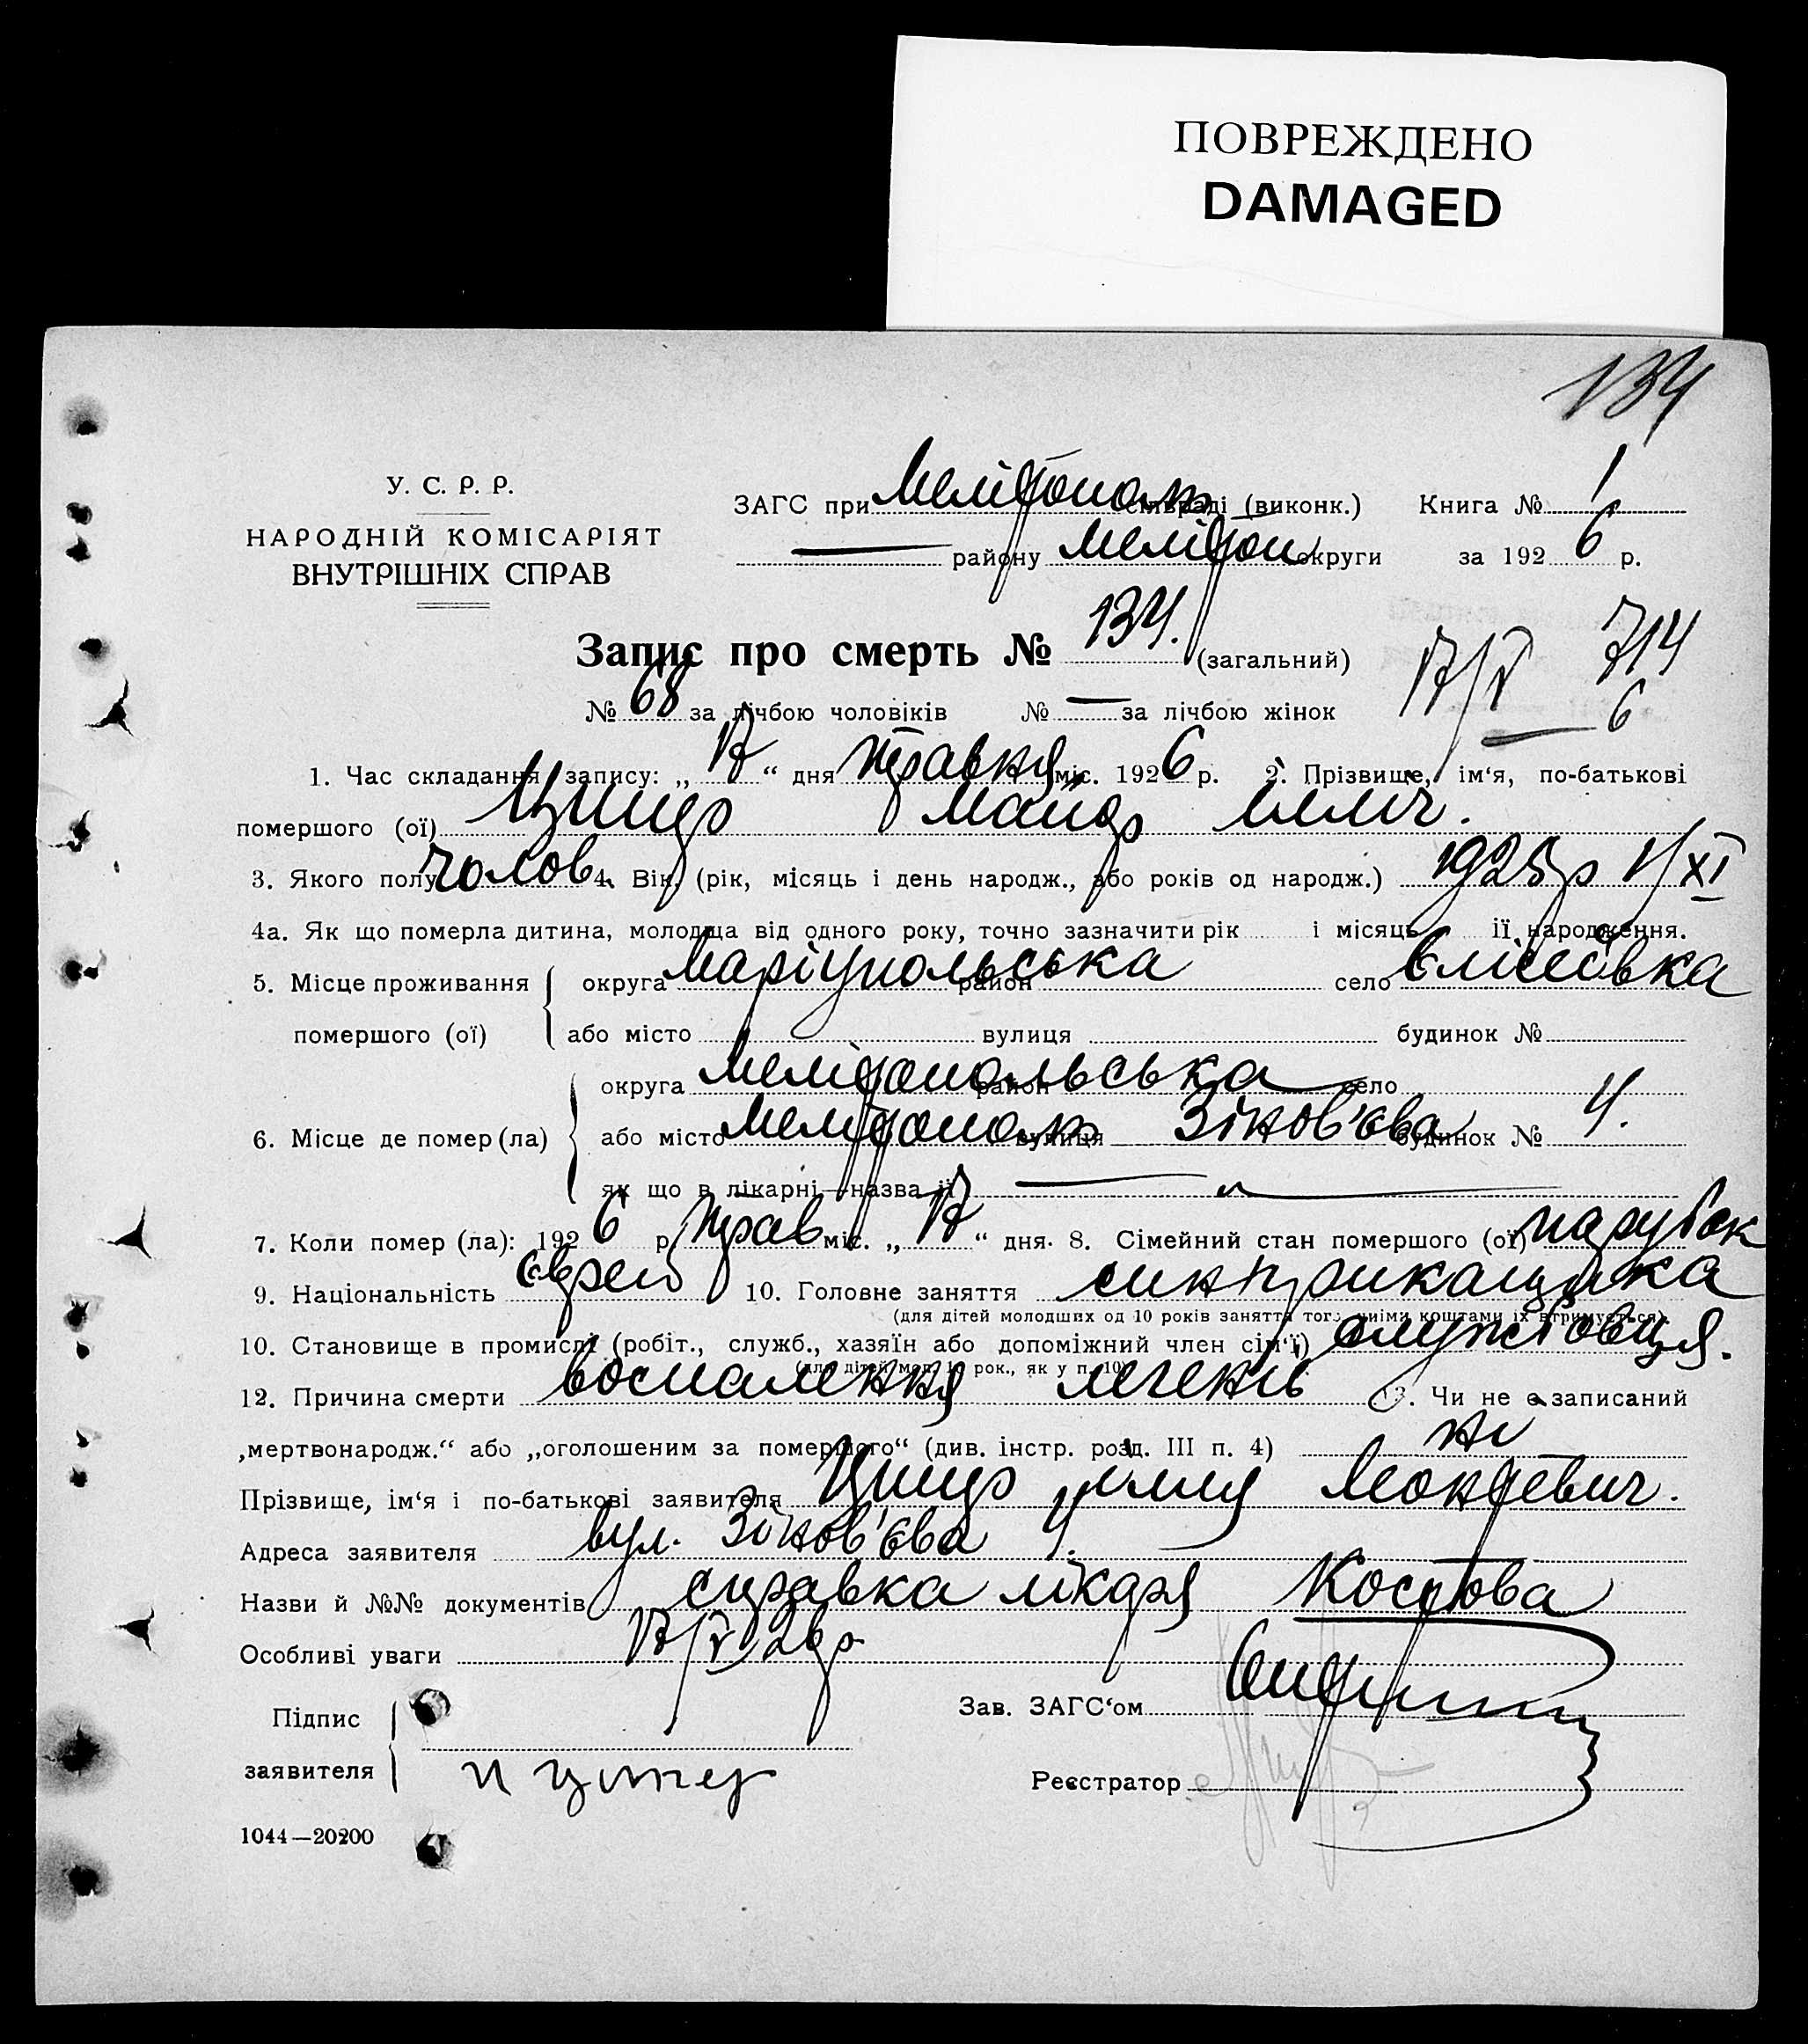 ПОВРЕЖДЕНО
DAMAGED
134
У. С. Р. Р.
НАРОДНІЙ КОМІСАРІЯТ
ВНУТРІШНІХ СПРАВ
ЗАГС при Мелітополь сільраді (виконк.) Книга № 1
— району Мелітоп округи за 1926 р.
Запис про смерть № 134. (загальний)
714
6
№ 68 за лічбою чоловіків № — за лічбою жінок
1. Час складання запису: „ “ дня травня міс. 1926 р. 2. Прізвище, ім‘я, по-батькові
помершого (ої) Ципер Майор Ілліч.
3. Якого полу чолов. 4. Вік (рік, місяць і день народж., або років од народж.) 1925 р 1/XI
4а. Як що померла дитина, молодща від одного року, точно зазначити рік і місяць її народження.
5. Місце проживання помершого (ої) округа Маріупольська район село Єлісеівка
або місто вулиця будинок №
6. Місце де помер (ла) округа Мелітопольська район село
або місто Мелітополь вулиця Зінов'єва будинок № 4.
як що в лікарні—назва її — „ —
7. Коли помер (ла): 1926 р. трав міс. „ “ дня. 8. Сімейний стан помершого (ої) парубок
9. Національність єврей 10. Головне заняття син прикащика
(для дітей молодших од 10 років заняття того, чиїми коштами їх втримується)
10. Становище в промислі (робіт., служб., хазяїн або допоміжний член сім‘ї) службовця.
(для дітей мол. 10 рок., як у п. 10)
12. Причина смерти воспалення легенів 13. Чи не є записаний
„мертвонародж.“ або „оголошеним за померлого“ (див. інстр. розд. III п. 4) ні
Прізвище, ім‘я і по-батькові заявителя Ципер Ілля Леонтевич.
Адреса заявителя вул. Зінов'єва 4.
Назви й №№ документів справка лікаря Костова
Особливі уваги 26 р.
Підпис
заявителя
Зав. ЗАГС‘ом
и ципер
Реєстратор
1044—20200